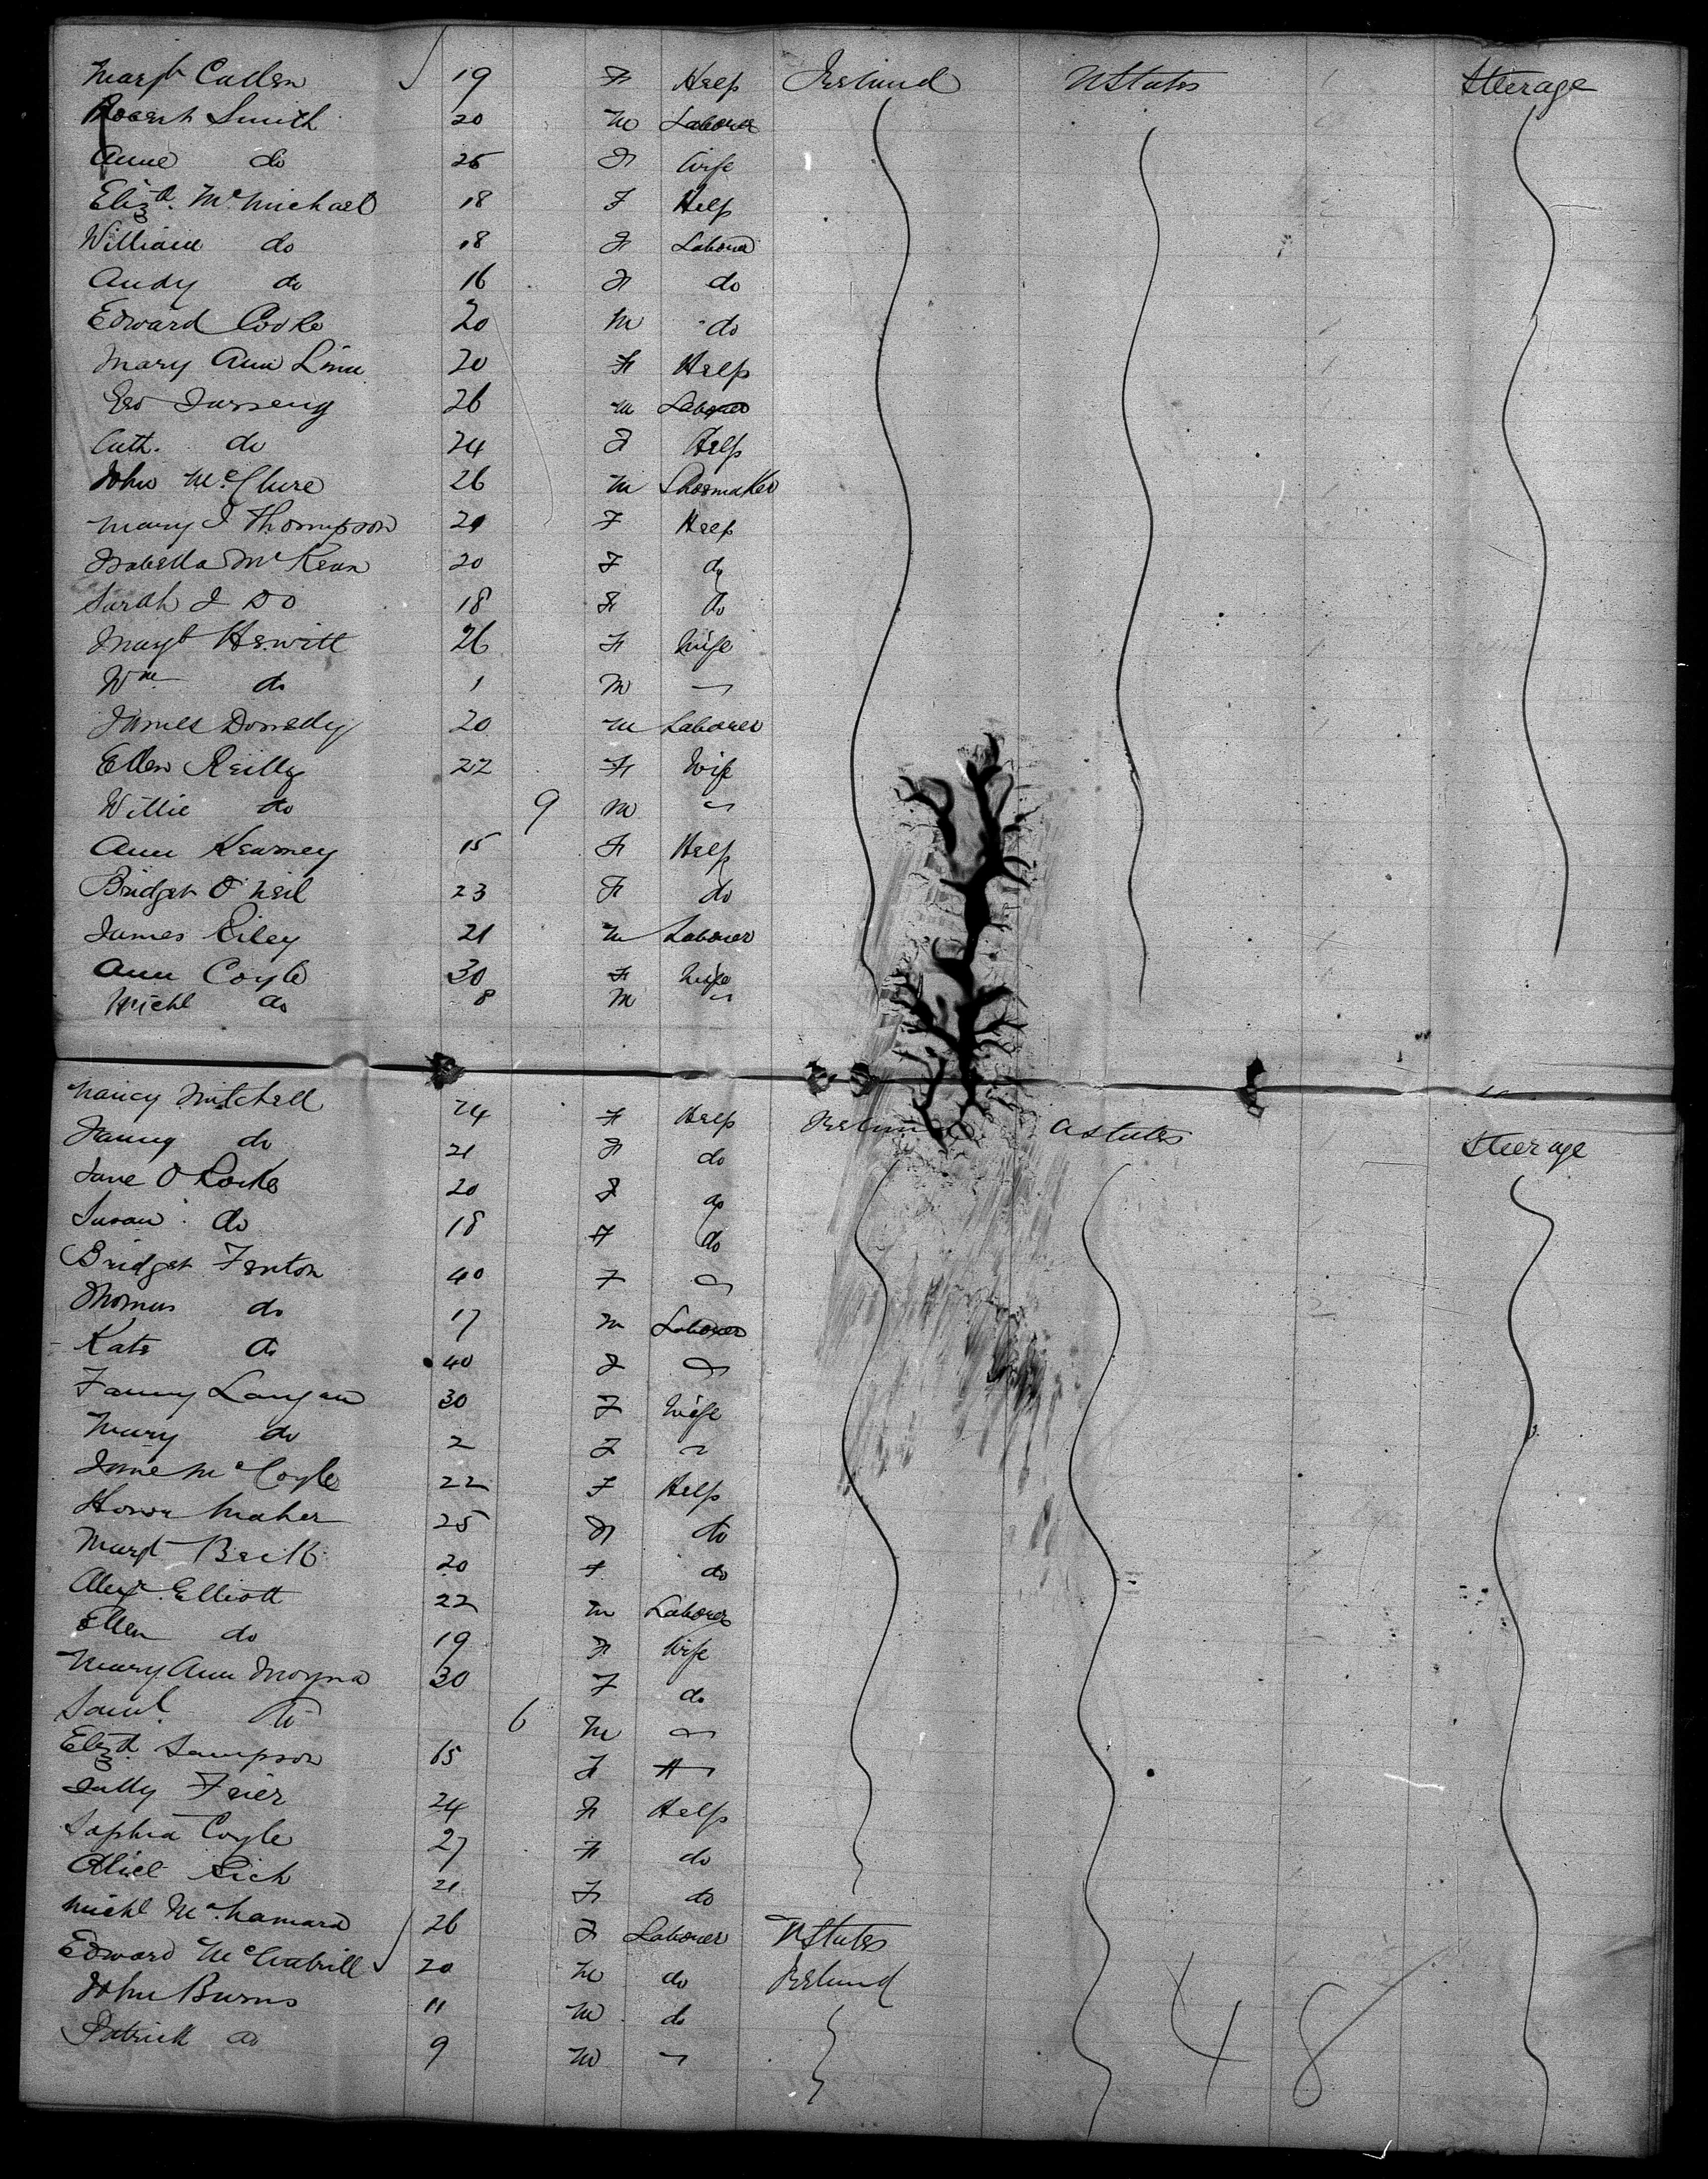 Margt Cullen 19 F Help Ireland UStates Steerage
Robert Smith 20 M Laborer
Anne do 25 F Wife
Elizth. McMichael 18 F Help
William do 18 F Laborer
Andy do 16 F do
Edward Cooke 20 M do
Mary Ann Linn 20 F Help
Geo 26 M Laborer
Cath. do 24 F Help
John McClure 26 M Shoemaker
Mary J Thompson 20 F Help
Isabella McKean 20 F do
Sarah J Do 18 F do
Margt Hewitt 26 F Wife
Wm do 1 M —
James Donnelly 20 M Laborer
Ellen Reilly 22 F Wife
Willie do 9 M —
Ann Kearney 15 F Help
Bridget O'Neil 23 F do
James Riley 21 M Laborer
Ann Coyle 30 F Wife
Michl do 8 M —
Nancy Mitchell 24 F Help Ireland UStates Steerage
Fanny do 21 F do
Jane O'Rorke 20 F do
Susan do 18 F do
Bridget Fenton 40 F —
Thomas do 17 M Laborer
Kate do 40 F —
Fanny Langan 30 F Wife
Mary do 2 F —
Jane McCoyle 22 F Help
Maher 25 F do
Margt 20 F do
Alexr. Elliott 22 M Laborer
Ellen do 19 F Wife
Mary Ann Moyna 30 F do
Saml. do 6 M —
Elizth Sampson 65 F —
Sally Frier 24 F Help
Sophia Coyle 27 F do
Alice Rich 21 F do
Michl McNamara 26 F Laborer UStates
Edward 20 M do Ireland
John Burns 11 M do
Patrick do 9 M —
48